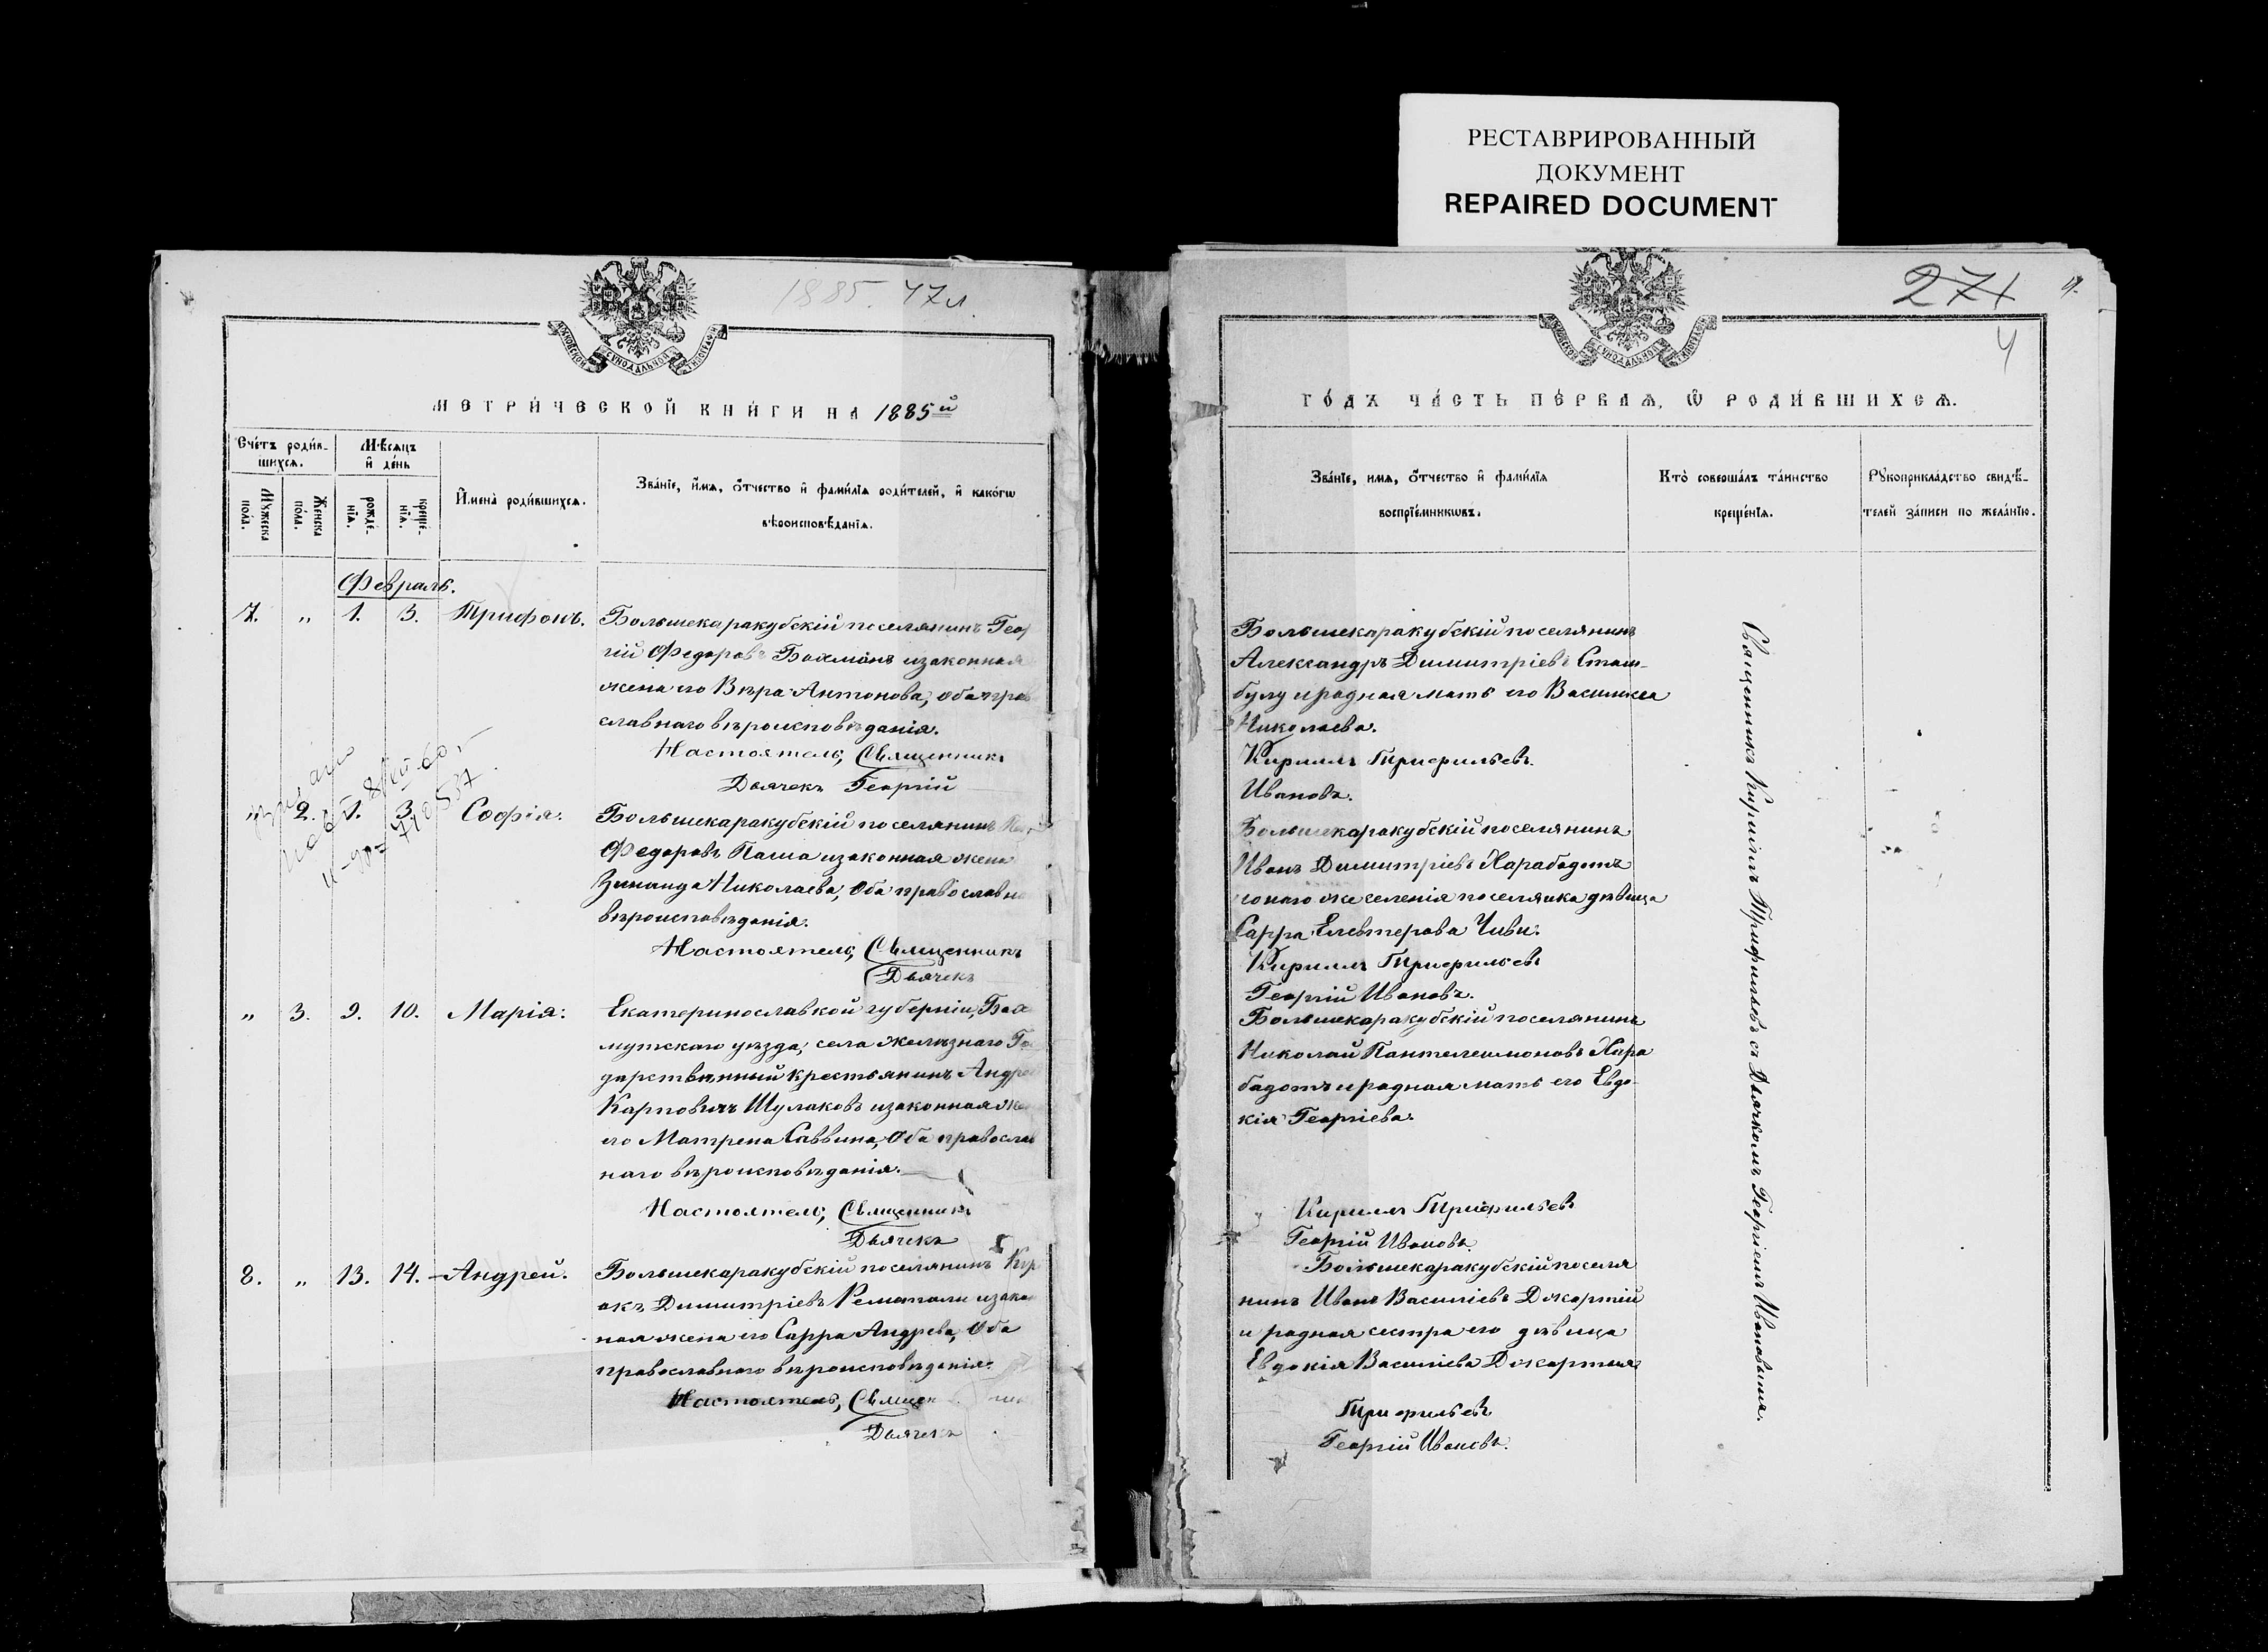 РЕСТАВРИРОВАННЫЙ
ДОКУМЕНТ
REPAIRED DOCUMENT
1885. 47 л.
МОСКОВСКОЙ СѴНОДАЛЬНОЙ ТИПОГРАФ
МЕТРИ́ЧЕСКОЙ КНИ́ГИ НА 1885й
Сче́тъ роди́в-
шихсѧ.
Мѣ́сѧцъ
и҆ де́нь
Мꙋжеска
пола̀.
Же́нска
по́ла.
рожде́-
нїѧ.
креще́-
нїѧ.
И҆мена̀ роди́вшихсѧ.
Зва́нїе, и҆́мѧ, ѻ҆́тчество и҆ фами́лїѧ роди́телей, и҆ како́гѡ
вѣроисповѣ́данїѧ.
Февраль.
7. „ 1. 3. Трифонъ. Большекаракубскій поселянинъ Геор
гій Федоровъ Бахманъ и законная
жена его Вѣра Антонова, оба пра
славнаго вѣроисповѣданія.
Настоятель, Священникъ
Дьячекъ Георгій
„ 2. 1. 3. Софія. Большекаракубскій поселянинъ
Федоровъ Паша и законная жена
Зинаида Николаева, Оба православн
вѣроисповѣданія.
Настоятель, Священникъ
Дьячекъ
„ 3. 9. 10. Марія. Екатеринославкой губерніи, Бах
мутскаго уѣзда, села Желѣзнаго Го
дарственный крестьянинъ Андре
Карповичъ Шулаковъ и законная же
его Матрена Саввина, Оба православ
наго вѣроисповѣданія.
Настоятель, Священникъ
Дьячекъ
8. „ 13. 14. Андрей. Большекаракубскій поселянинъ Кир
акъ Димитріевъ Кематоли и зако
ная жена его Сарра Андрева, Оба
православнаго вѣроисповѣданія.
Настоятель, Священ
Дьячекъ
274
4
МОСКОВСКОЙ СѴНОДАЛЬНОЙ ТИПОГРАФ
ГО́ДЪ ЧА́СТЬ ПЕ́РВАѦ, Ѡ҆ РОДИ́ВШИХСѦ.
Зва́нїе, имѧ, ѻ҆́тчество и҆ фами́лїѧ
воспрїе́мникѡвъ.
Кто̀ соверша́лъ та́инство
креще́нїѧ.
Рꙋкоприкла́дство свидѣ́-
телей за́писи по жела́нїю.
Большекаракубскій поселянинъ
Александръ Димитріевъ Стам-
булу и родная мать его Василиса
Николаева.
Кириллъ Трифильевъ
Ивановъ.
Большекаракубскій поселянинъ
Иванъ Димитріевъ Харабадотъ
и онаго же селенія поселянка дѣвица
Сарра Елевтерова Чиви.
Кириллъ Трифильевъ
Георгій Ивановъ.
Большекаракубскій поселянинъ
Николай Пантелеимоновъ Хара
бадотъ и родная мать его Евдо-
кія Георгіева.
Кириллъ Трифильевъ
Георгій Ивановъ.
Большекаракубскій поселя
нинъ Иванъ Василіевъ Джартій
и родная сестра его дѣвица
Евдокія Василіева Джартыя
Трифильевъ
Георгій Ивановъ.
Священникъ Кириллъ Трифильевъ съ Дьячкомъ Георгіемъ Ивановымъ.